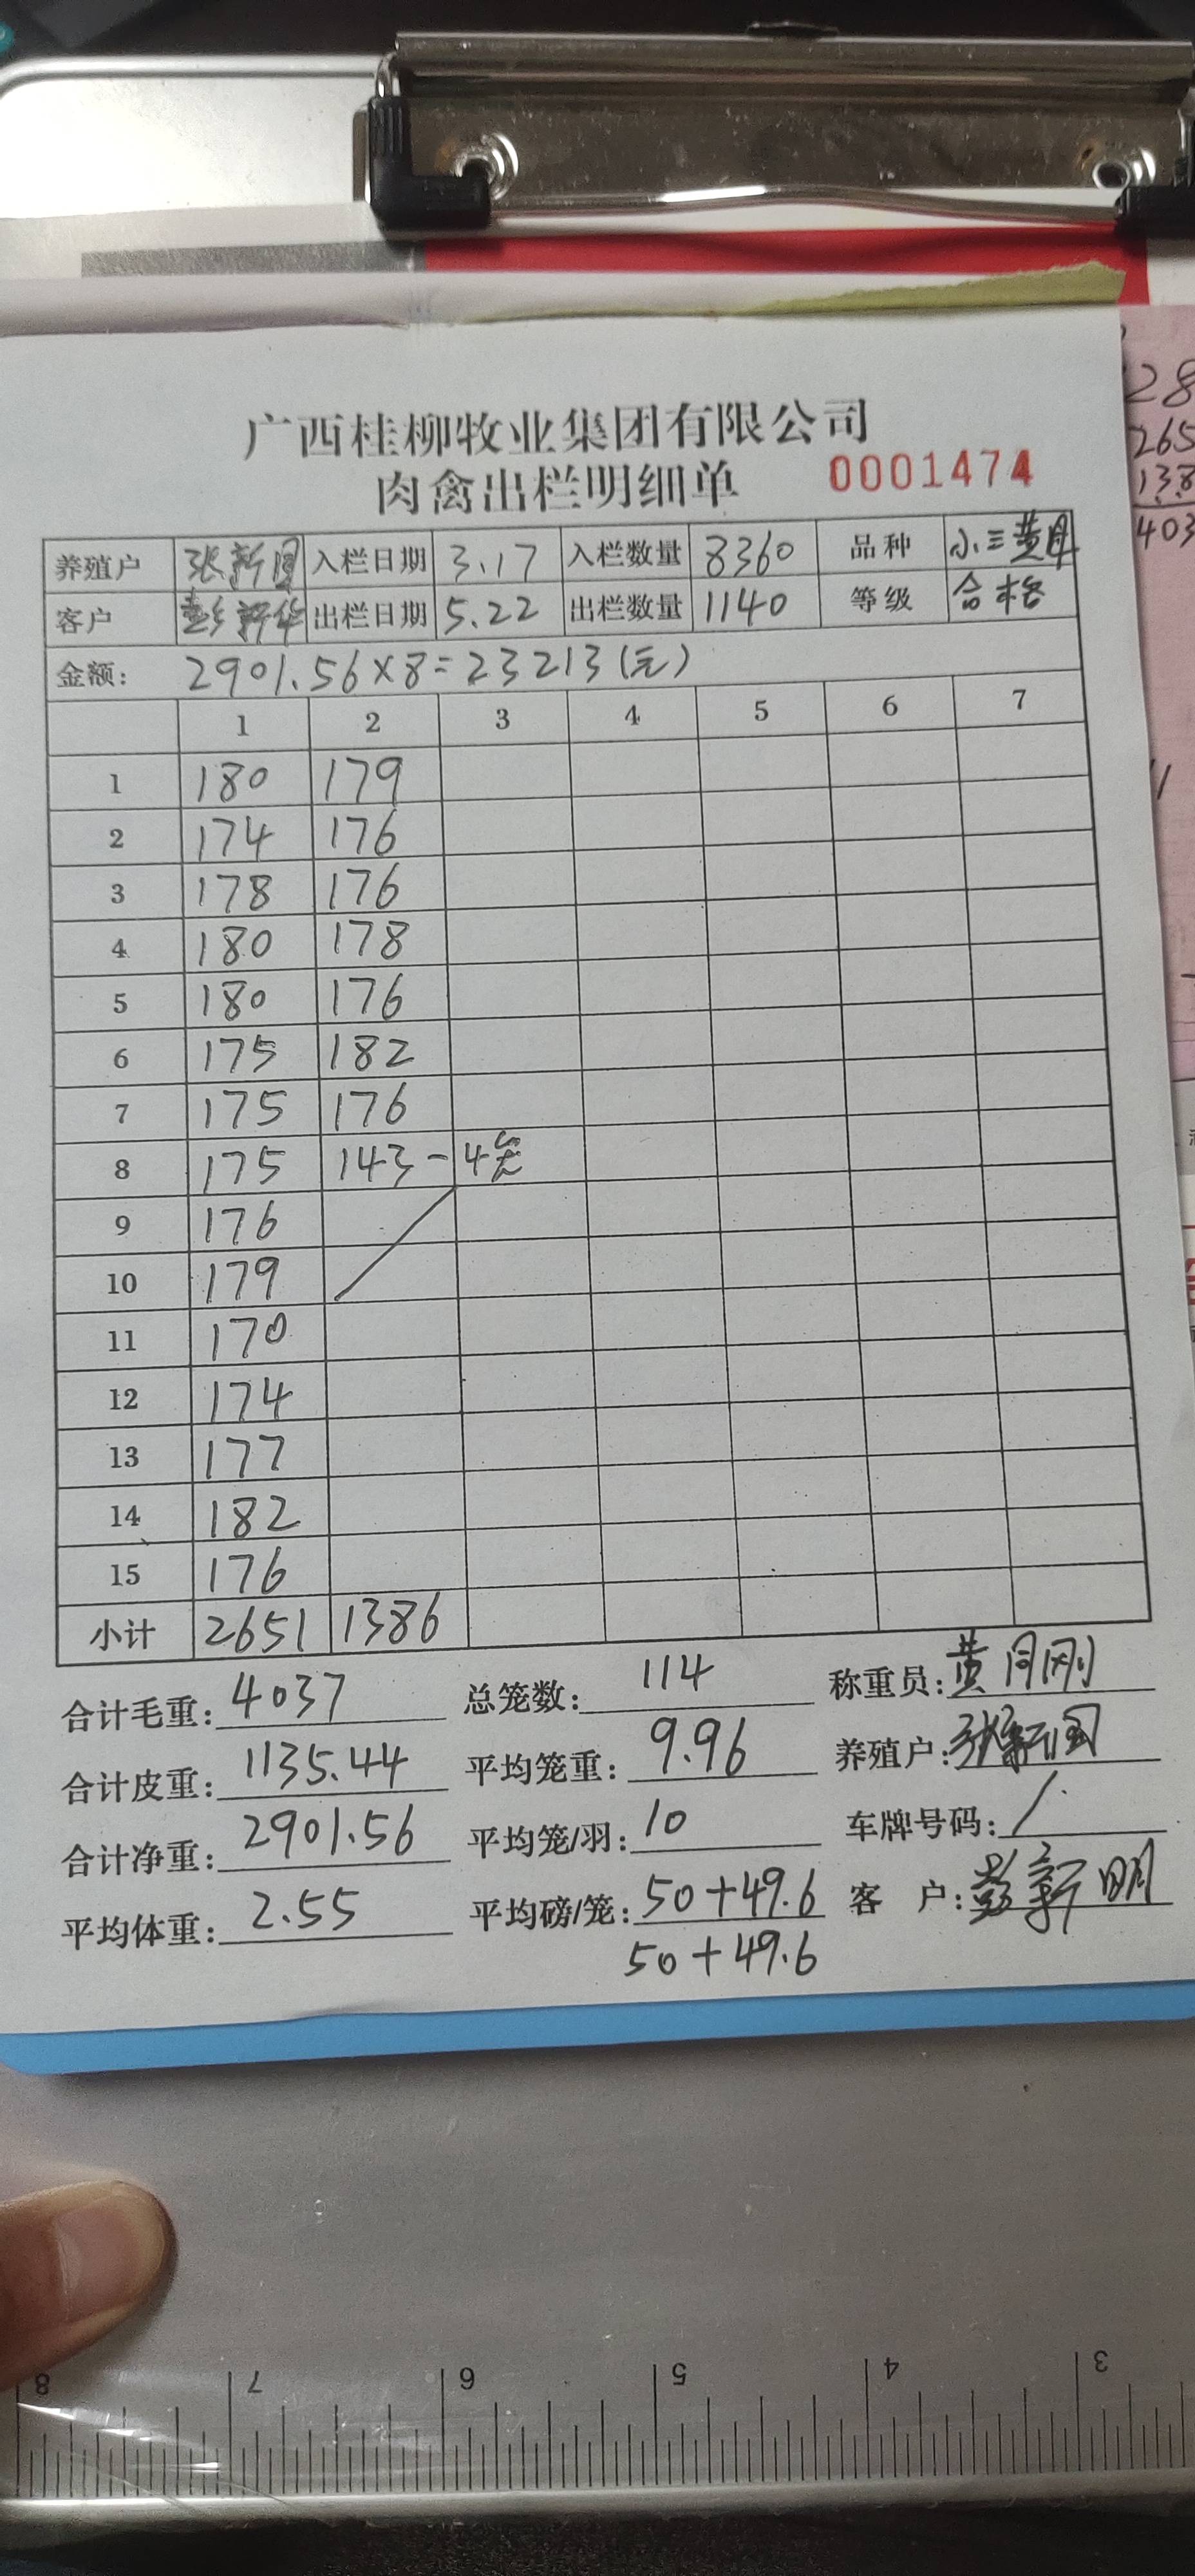 广西桂柳牧业集团有限公司
肉禽出栏明细单 0001474
养殖户 张新国 入栏日期 3.17 入栏数量 8360 品种 小三黄母
客户 彭新华 出栏日期 5.22 出栏数量 1140 等级 合格
金额: 2901.56×8=23213(元)
1 2 3 4 5 6 7
1 180 179
2 174 176
3 178 176
4 180 178
5 180 176
6 175 182
7 175 176
8 175 143-4笼
9 176
10 179
11 170
12 174
13 177
14 182
15 176
小计 2651 1386
合计毛重: 4037 总笼数: 114 称重员: 黄月刚
合计皮重: 1135.44 平均笼重: 9.96 养殖户: 张新国
合计净重: 2901.56 平均笼/羽: 10 车牌号码: /
平均体重: 2.55 平均磅/笼: 50+49.6 客 户: 彭新明
50+49.6
28
265
138
403
8 7 6 5 4 3